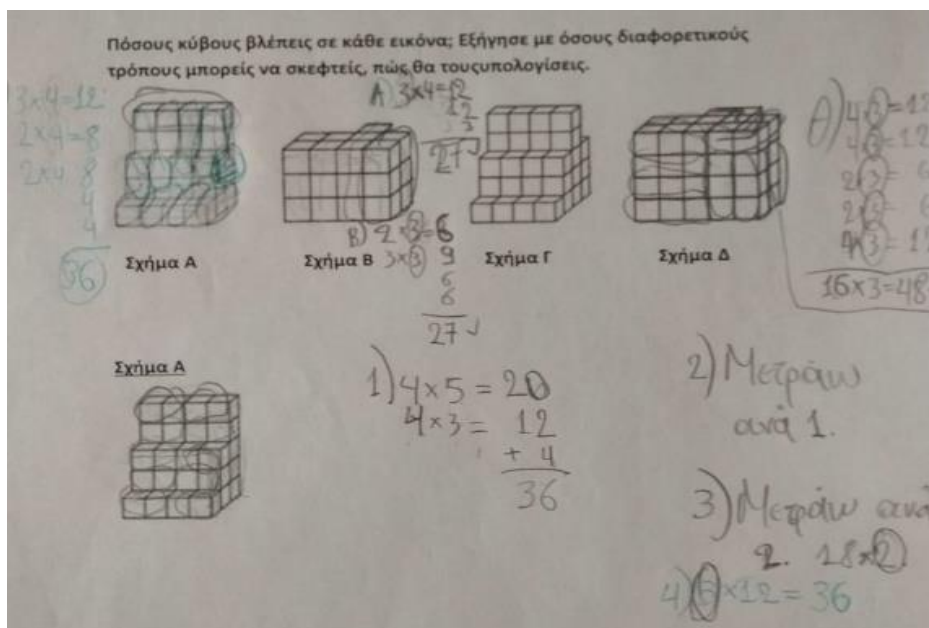 Πόσους κύβους βλέπεις σε κάθε εικόνα; Εξήγησε με όσους διαφορετικούς
τρόπους μπορείς να σκεφτείς, πώς θα τουςυπολογίσεις.
3x4=12
2x4=8
2x4 8
4
4
36
Α) 3x4=12
12
3
27
Β) 2x3=6
3x3 9
6
6
27
4 3=12
4 3=12
2 3= 6
2 3= 6
4x3=12
16x3=48
Σχήμα Α
Σχήμα Β
Σχήμα Γ
Σχήμα Δ
Σχήμα Α
1) 4x5 = 20
4x3 = 12
+ 4
36
2) Μετράω
ανά 1.
3) Μετράω ανά
2. 18x2
4) x12 = 36